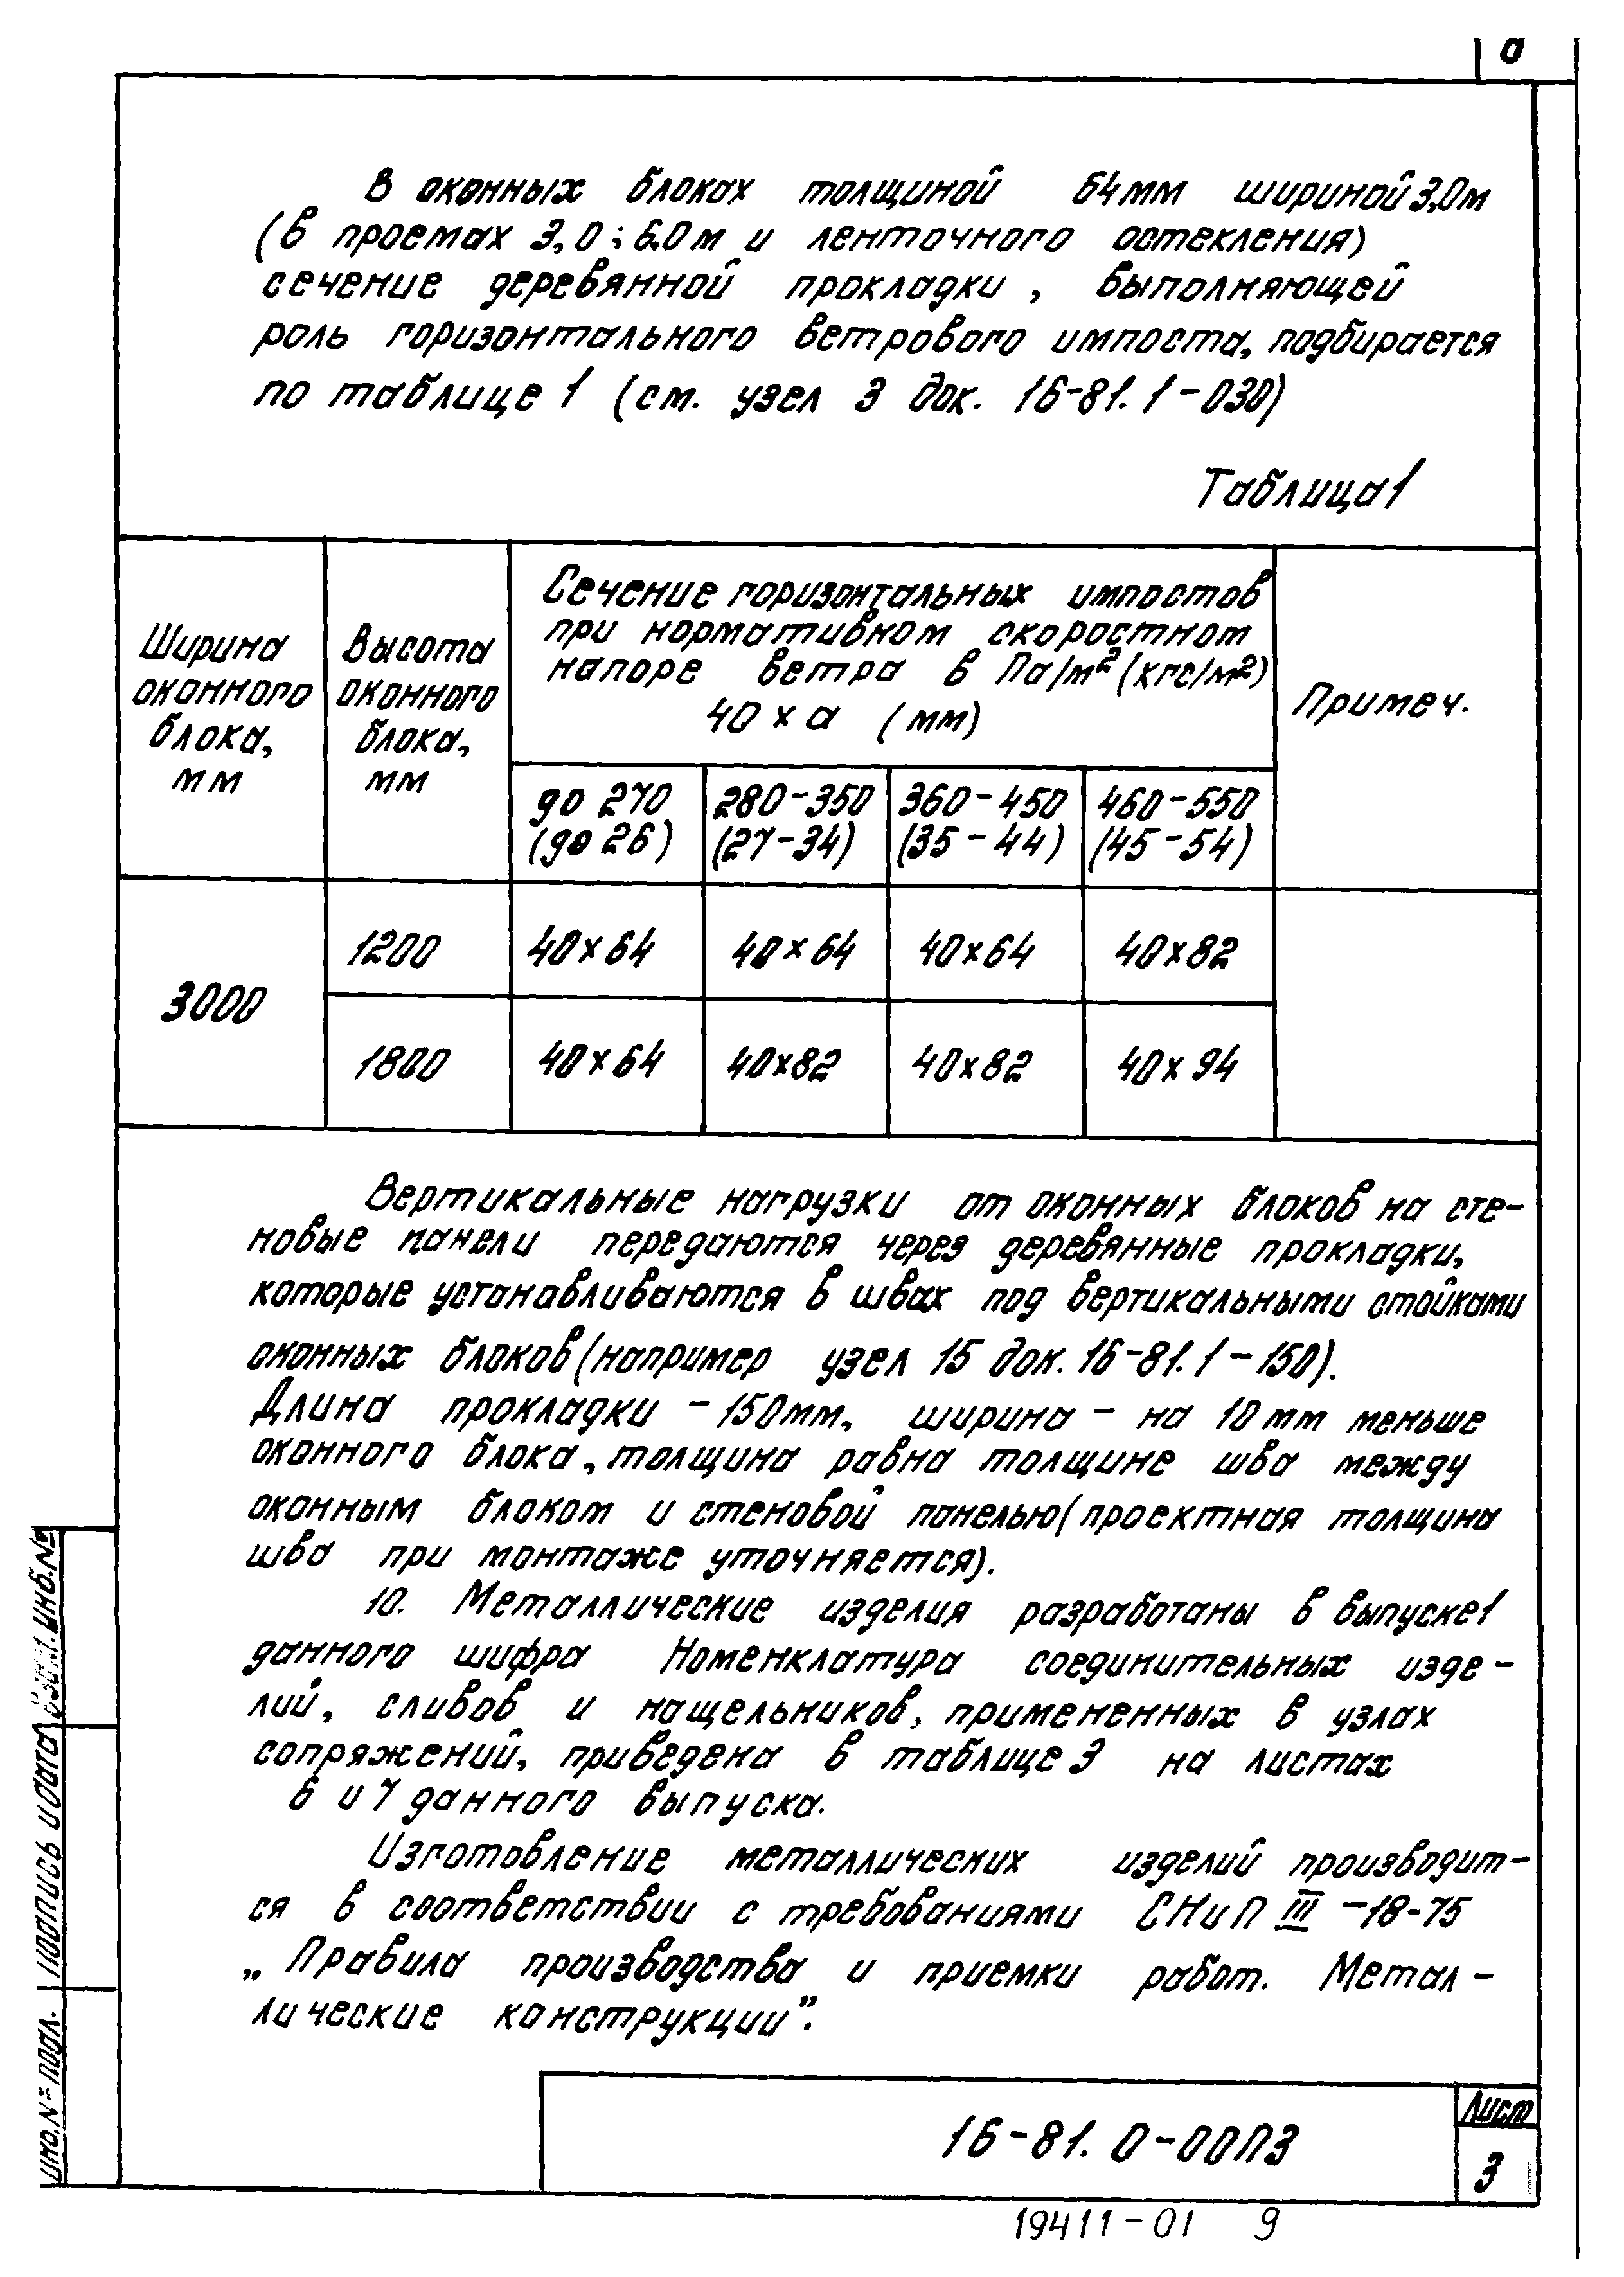 В оконных блоках толщиной 64мм шириной 3,0м
(в проемах 3,0; 6.0м и ленточного остекления)
сечение деревянной прокладки, выполняющей
роль горизонтального ветрового импоста, подбирается
по таблице 1 (см. узел 3 док. 16-81.1-030)
Таблица 1
Ширина оконного блока, мм
Высота оконного блока, мм
Сечение горизонтальных импостов
при нормативном скоростном
напоре ветра в Па/м² (кгс/м²)
40 × а (мм)
Примеч.
до 270 280-350 360-450 460-550
(до 26) (27-34) (35-44) (45-54)
3000
1200 40×64 40×64 40×64 40×82
1800 40×64 40×82 40×82 40×94
Вертикальные нагрузки от оконных блоков на сте-
новые панели передаются через деревянные прокладки,
которые устанавливаются в швах под вертикальными стойками
оконных блоков (например узел 15 док. 16-81.1-150).
Длина прокладки - 150мм, ширина - на 10мм меньше
оконного блока, толщина равна толщине шва между
оконным блоком и стеновой панелью (проектная толщина
шва при монтаже уточняется).
10. Металлические изделия разработаны в выпуске 1
данного шифра Номенклатура соединительных изде-
лий, сливов и нащельников, примененных в узлах
сопряжений, приведена в таблице 3 на листах
6 и 7 данного выпуска.
Изготовление металлических изделий производит-
ся в соответствии с требованиями СНиП III -18-75
„Правила производства и приемки работ. Метал-
лические конструкции”.
Инв.№ подл. Подпись и дата Взам. инв.№
16-81.0-00ПЗ
Лист
3
19411-01 9